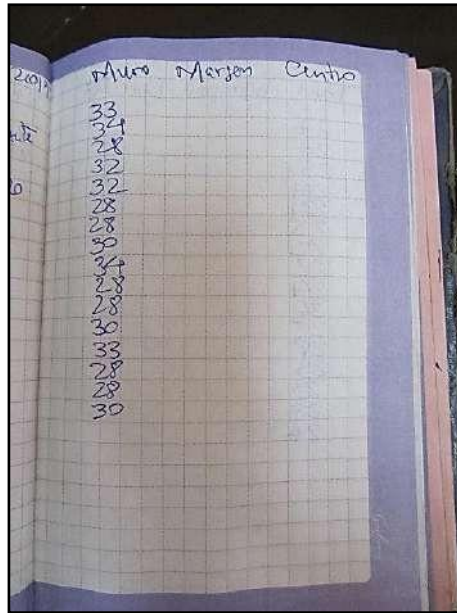 Muro Margen Centro
33
34
28
32
32
28
28
30
34
28
28
30
33
28
28
30